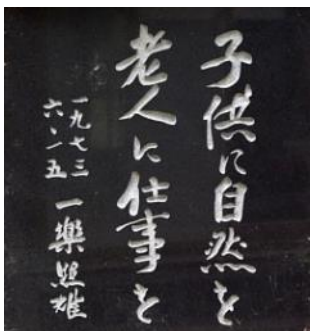 子供に自然を
老人に仕事を
一九七三
六、一五
一樂照雄